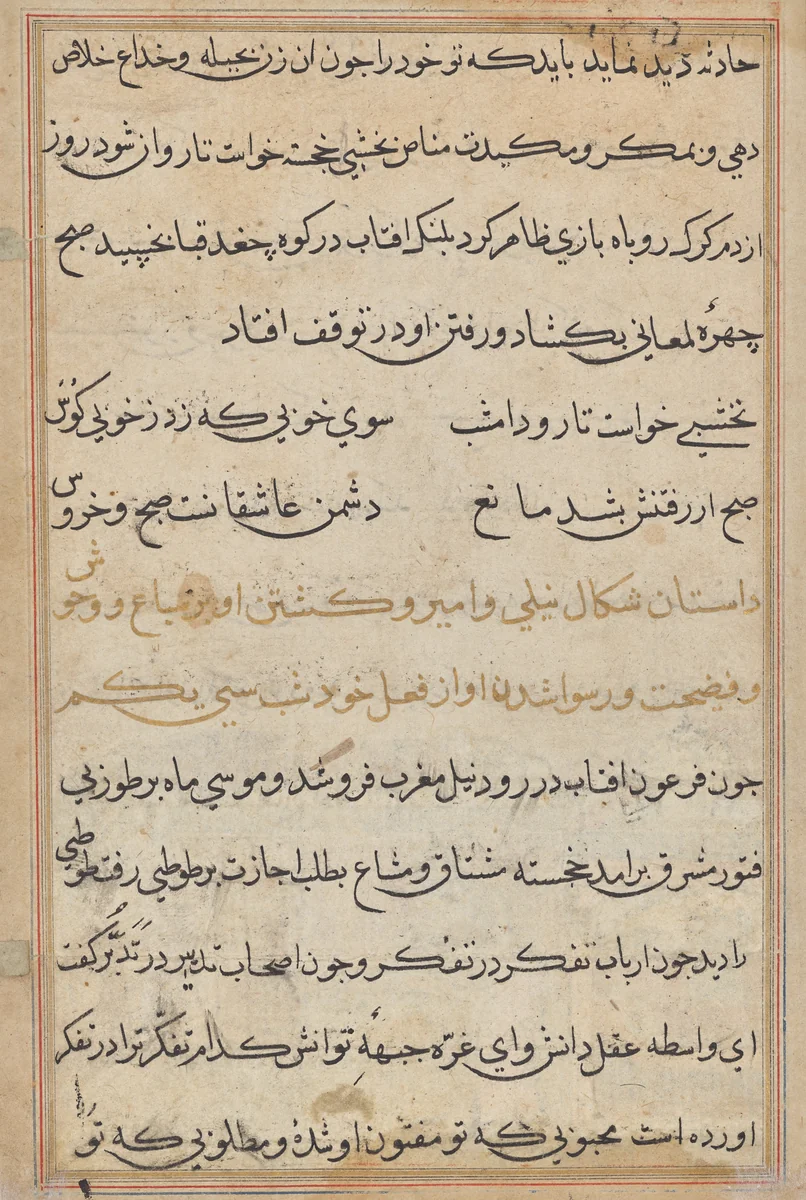 حادثه دید نماید باید که تو خود را جون ان زن بحیله و خداع خلاص
دهی و بمکر و مکیدت مناص نخشبی خجسته خواست تا روان شود روز
از دم کرک روباه بازی ظاهر کرد بلنک افتاب در کوه چغد قبا بخپید صبح
چهرهٔ لمعانی بکشاد و رفتن او در توقف افتاد
نخشبی خواست تا رود امشب سوی خوبی که زد ز خوبی کوس
صبح ار رفتنش بشد مانع دشمن عاشقانست صبح و خروس
داستان شکال نیلی و امیر و کشتن او بر سباع و وحوش
و فضیحت و رسوا شدن او از فعل خود شب سی یکم
جون فرعون افتاب در رود نیل مغرب فرو شد و موسی ماه بر طور بی
فتور مشرق برامد خجسته مشتاق و مشاع بطلب اجازت بر طوطی رفت طوطی
را دید جون ارباب تفکر در تفکر و جون اصحاب تدبیر در تدبّر گفت
ای واسطه عقل دانش وای غرّه جبههٔ توانش کدام تفکّر ترا در تفکر
اورده است محبوبی که تو مفتون او شدهٔ و مطلوبی که تو